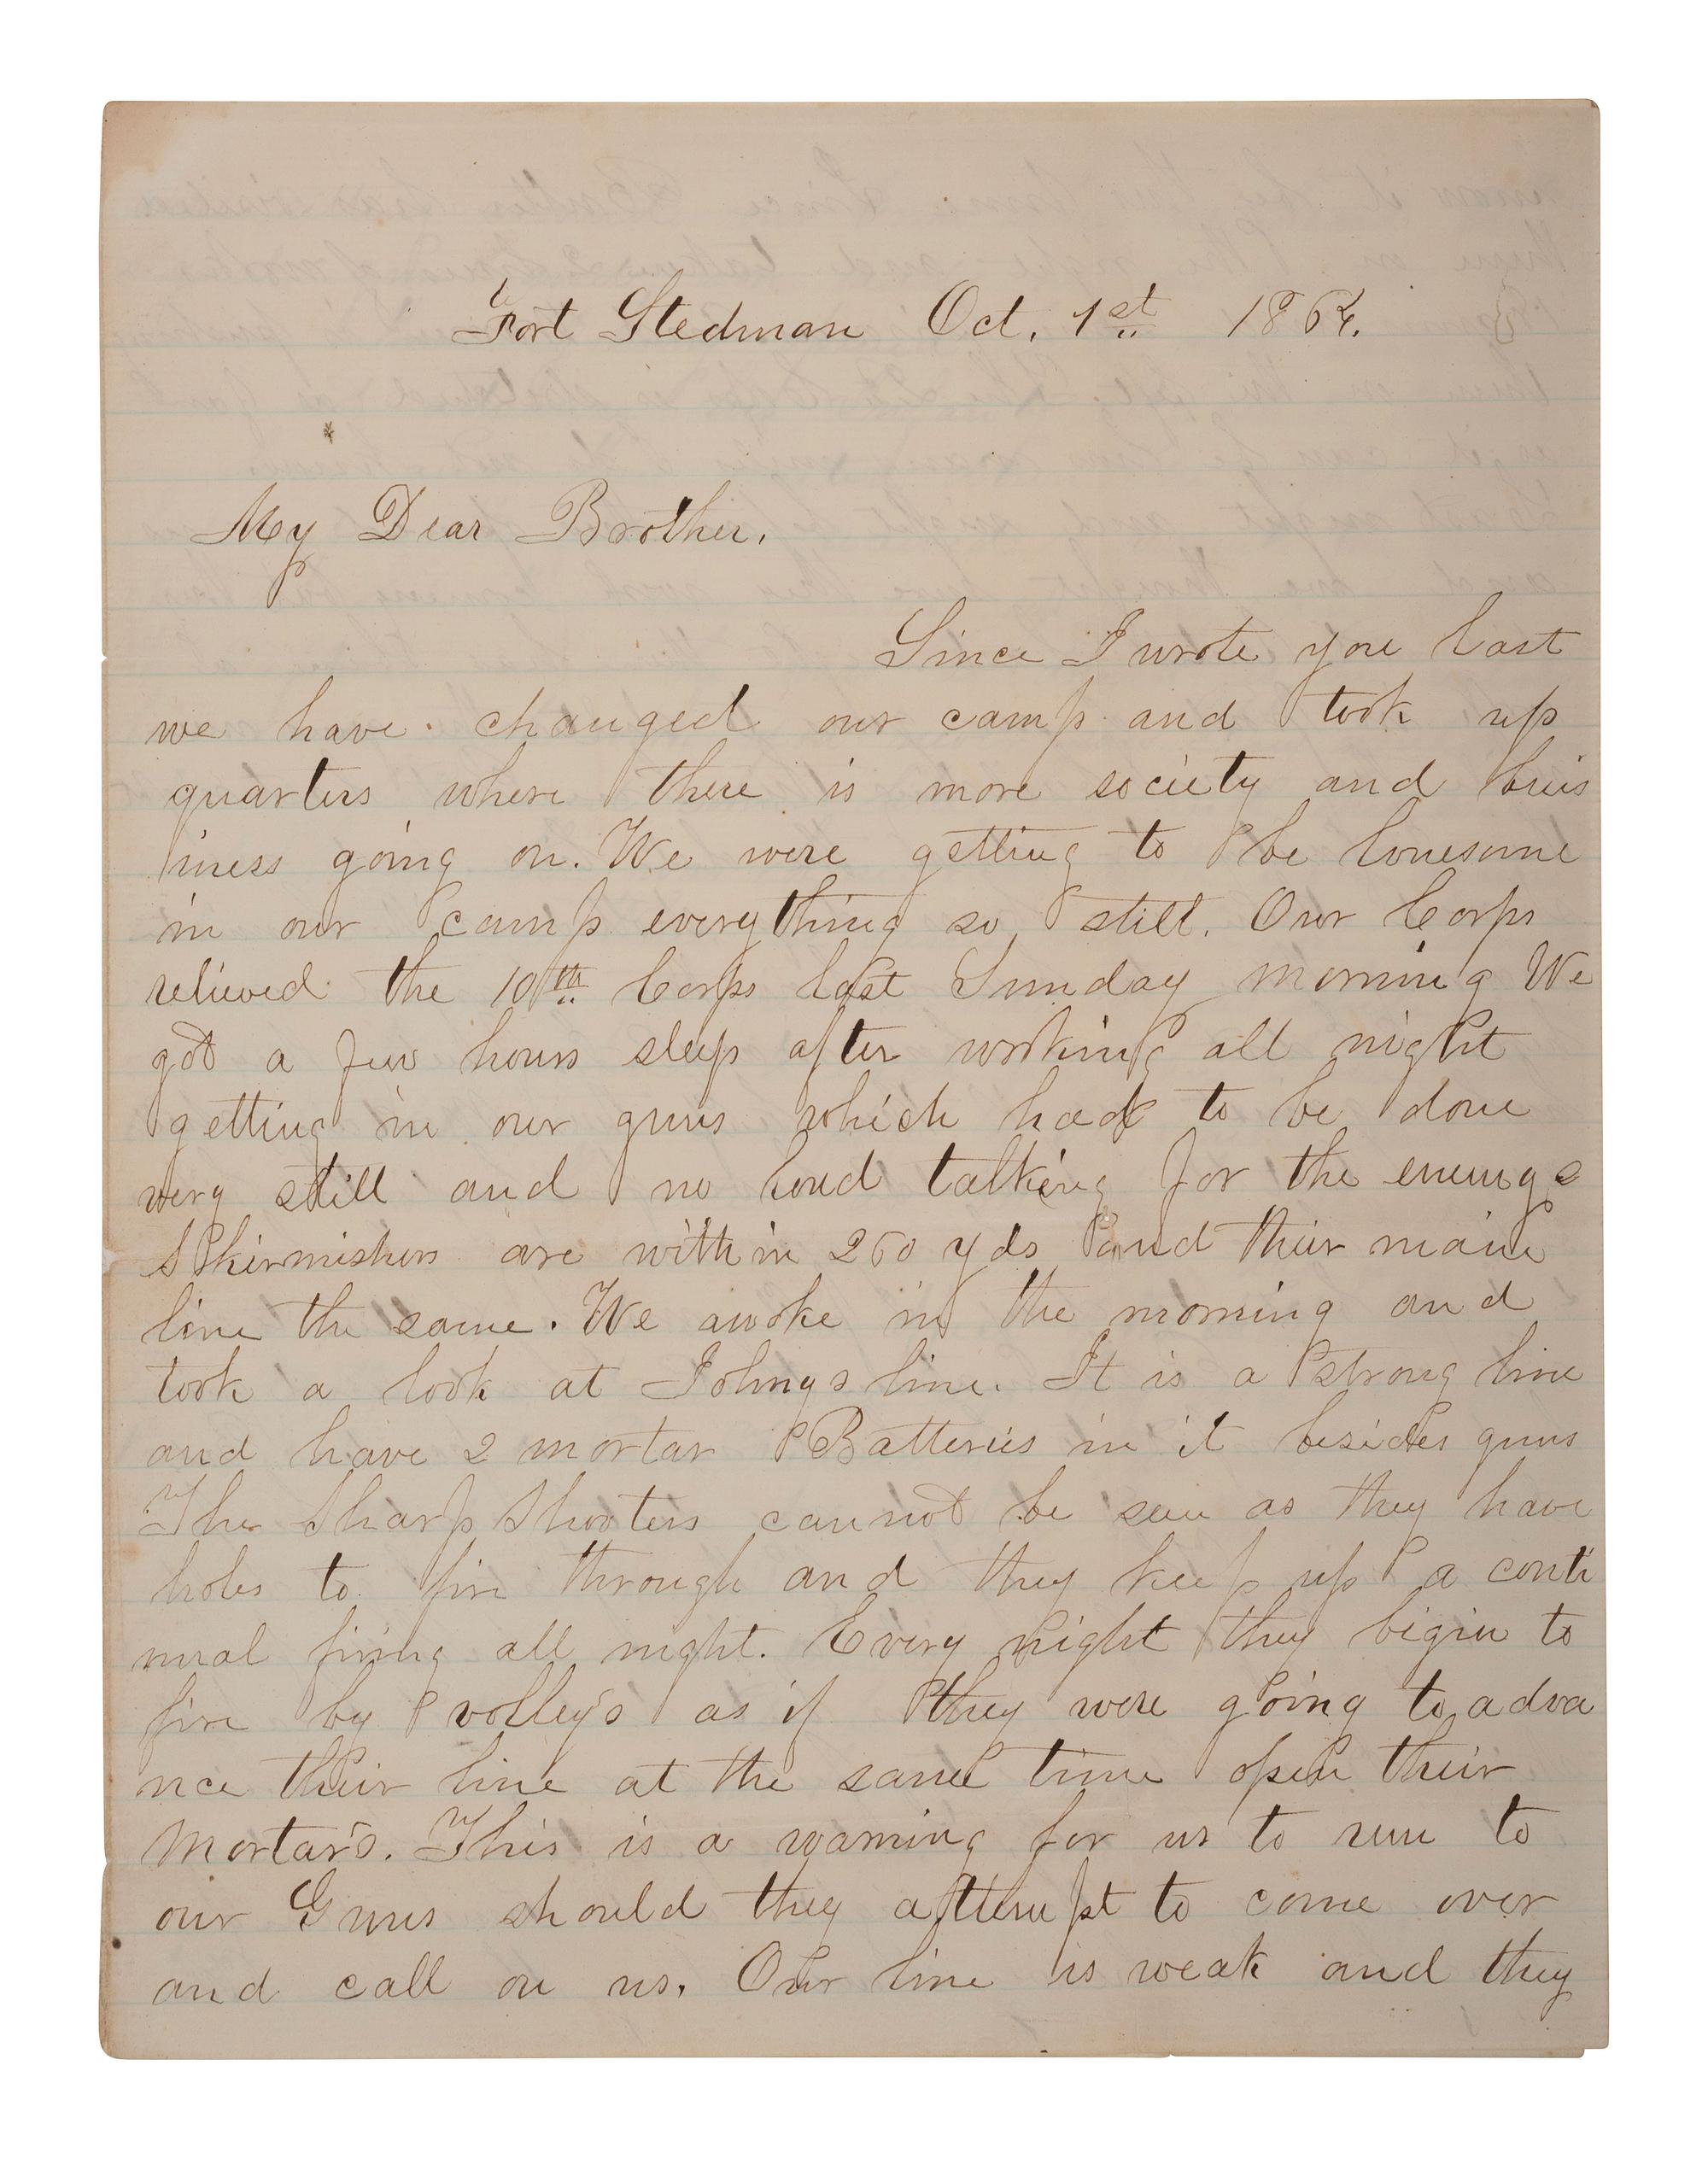 Fort Stedman Oct. 1st 1864.
My Dear Brother,
Since I wrote you last
we have changed our camp and took up
quarters where there is more society and buis
iness going on. We were getting to be lonesome
in our camp everything so still. Our Corps
relieved the 10th Corps last Sunday morning We
got a few hours sleep after working all night
getting in our guns which had to be done
very still and no loud talking for the enemys
Skirmishers are within 200 yds and their main
line the same. We awoke in the morning and
took a look at Johnys line. It is a strong line
and have 2 mortar Batteries in it besides guns
The Sharp Shooters cannot be seen as they have
holes to fire through and they keep up a conti
nual firing all night. Every night they begin to
fire by volleys as if they were going to adva
nce their line at the same time open their
Mortars. This is a warning for us to run to
our Guns should they attempt to come over
and call on us. Our line is weak and they